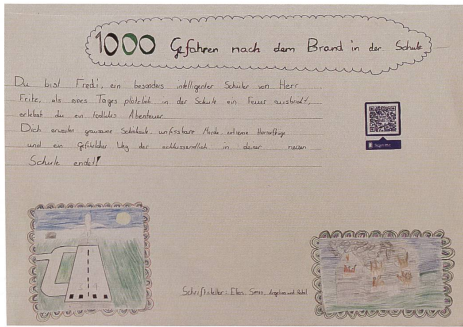 1000 Gefahren nach dem Brand in der Schule
Du bist Fredi, ein besonders intelligenter Schüler von Herr
Fritz, als eines Tages plötzlich in der Schule ein Feuer ausbricht,
erlebst du ein tödliches Abenteuer.
Dich erwarten grausame Schicksale, unfassbare Morde, extreme
und ein gefährlicher Weg der schlussendlich in deiner neuen
Schule endet!
Schriftsteller: Elias, und